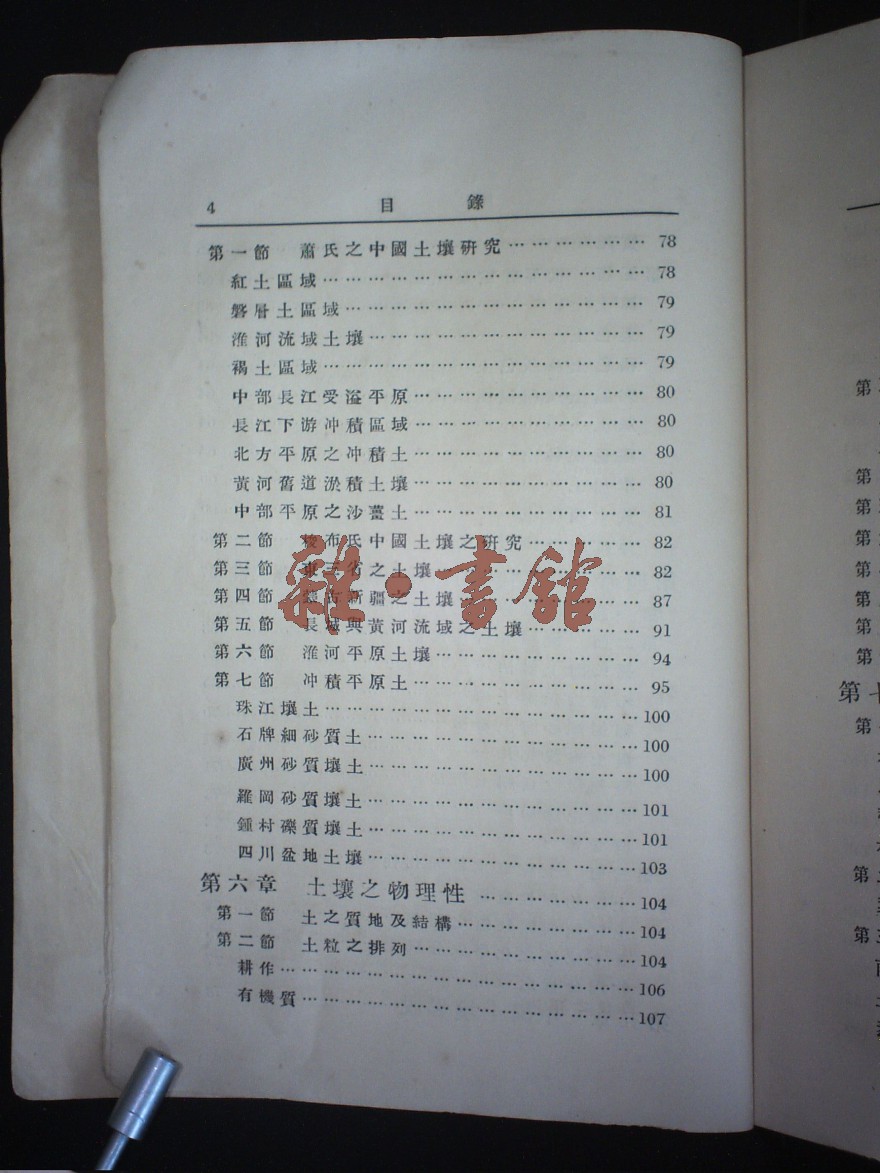 4 目錄
第一節 蕭氏之中國土壤研究………………… 78
紅土區域………………………………………… 78
磐層土區域……………………………………… 79
淮河流域土壤…………………………………… 79
褐土區域………………………………………… 79
中部長江受溢平原……………………………… 80
長江下游冲積區域……………………………… 80
北方平原之冲積土……………………………… 80
黃河舊道淤積土壤……………………………… 80
中部平原之沙薑土……………………………… 81
第二節 梭布氏中國土壤之研究……………… 82
第三節 東三省之土壤………………………… 82
第四節 蒙古新疆之土壤……………………… 87
第五節 長城與黃河流域之土壤……………… 91
第六節 淮河平原土壤………………………… 94
第七節 冲積平原土…………………………… 95
珠江壤土…………………………………………100
石牌細砂質土……………………………………100
廣州砂質壤土……………………………………100
羅岡砂質壤土……………………………………101
鍾村礫質壤土……………………………………101
四川盆地土壤……………………………………103
第六章 土壤之物理性…………………………104
第一節 土之質地及結構………………………104
第二節 土粒之排列……………………………104
耕作………………………………………………106
有機質……………………………………………107
雜·書館
第
第
第
第
第
第
第
第
第
第
第
第